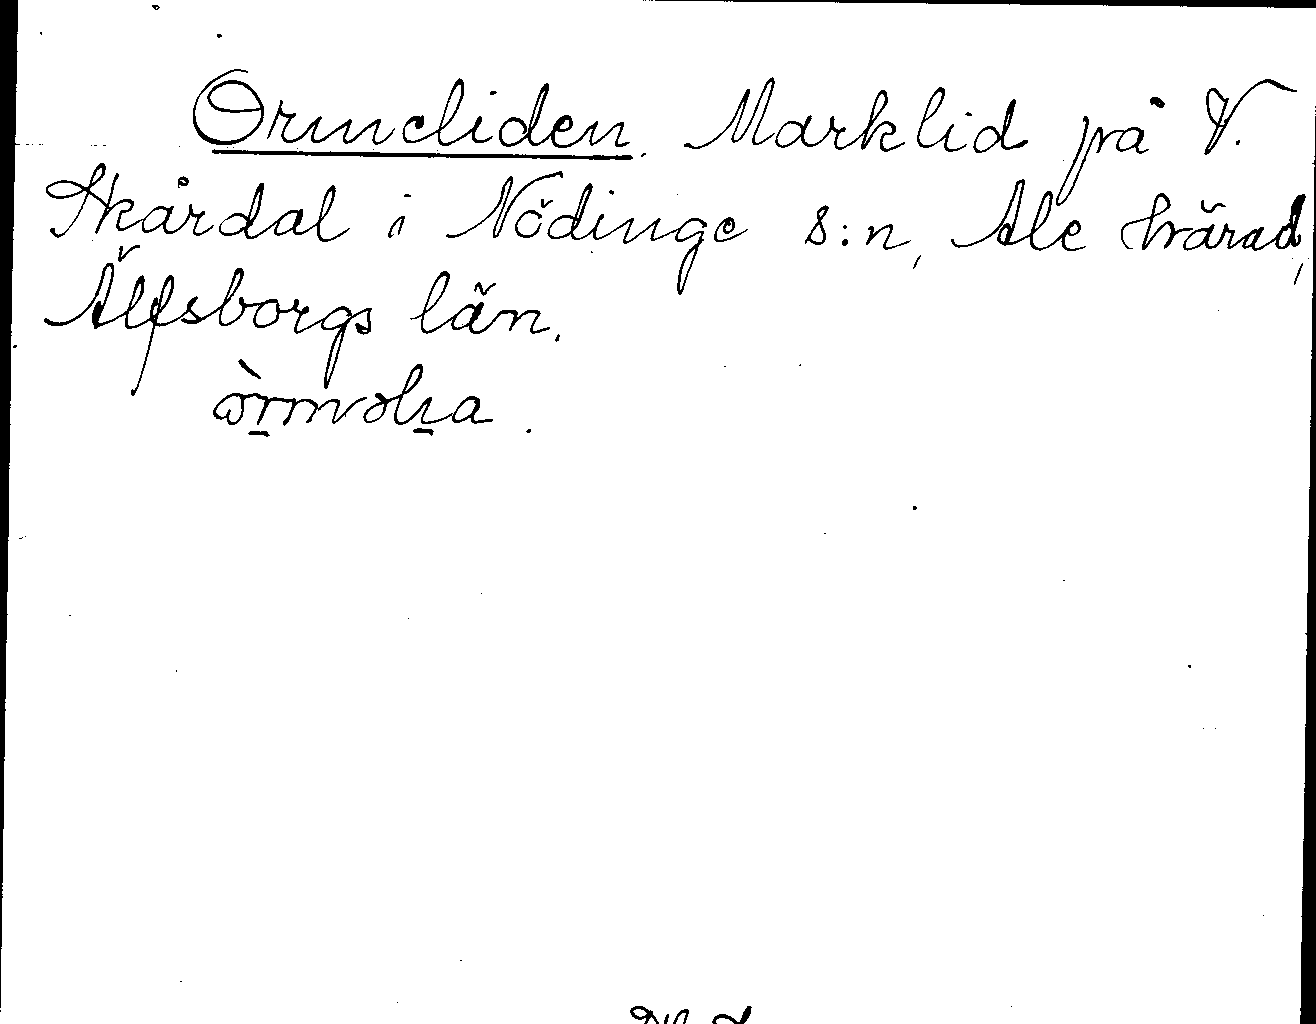 Ormeliden. Marklid på V.
Skårdal i Nödinge s:n, Ale härad,
Älfsborgs län.